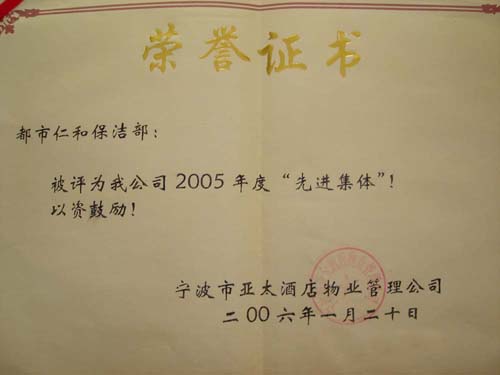 荣誉证书
都市仁和保洁部：
被评为我公司2005年度“先进集体”！
以资鼓励！
宁波市亚太酒店物业管理公司
二00六年一月二十日